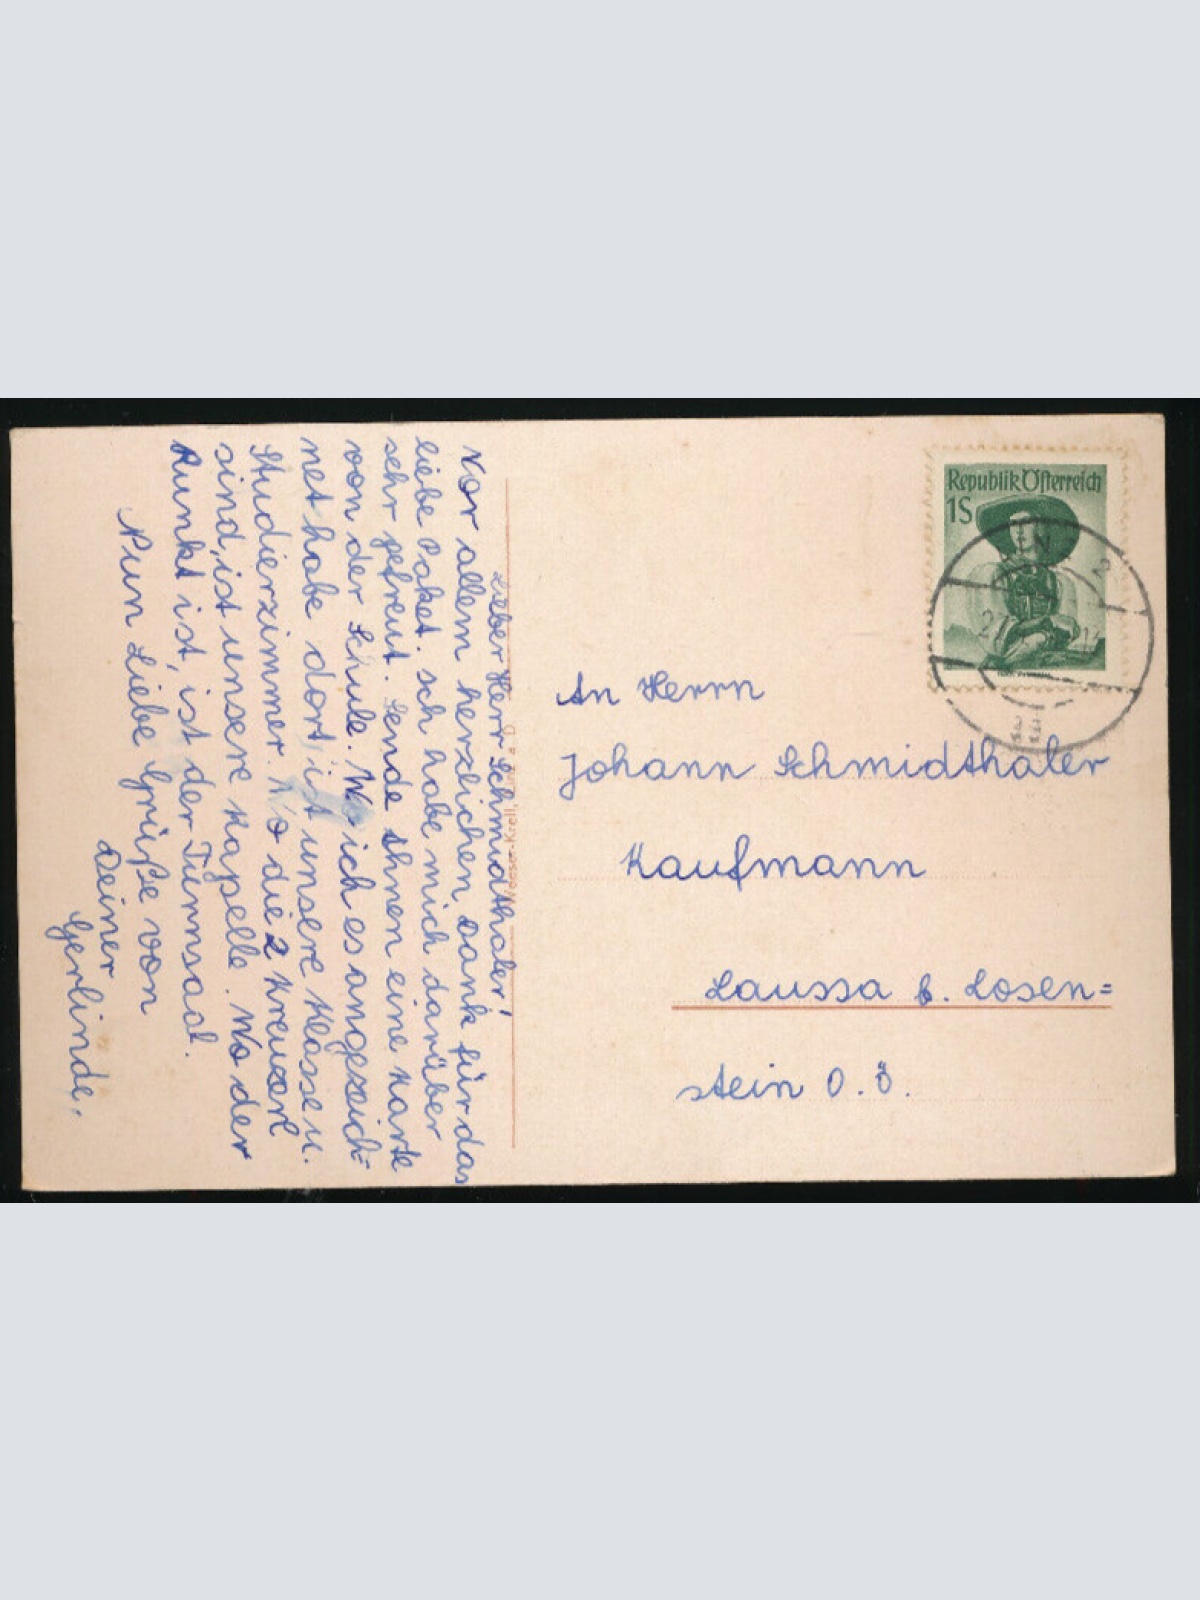 Lieber Herr Schmidthaler!
Vor allem herzlichen Dank für das
liebe Paket. Ich habe mich darüber
sehr gefreut. Sende Ihnen eine Karte
von der Schule. Wo ich es angezeich=
net habe dort ist unsere Klasse u.
Studierzimmer. Wo die 2 Kreuze
sind, ist unsere Kapelle. Wo der
Punkt ist, ist der Turnsaal.
Nun Liebe Grüße von
Deiner
Gerlinde.
Republik Österreich
1S
An Herrn
Johann Schmidthaler
Kaufmann
Laussa b. Losen=
stein O.Ö.